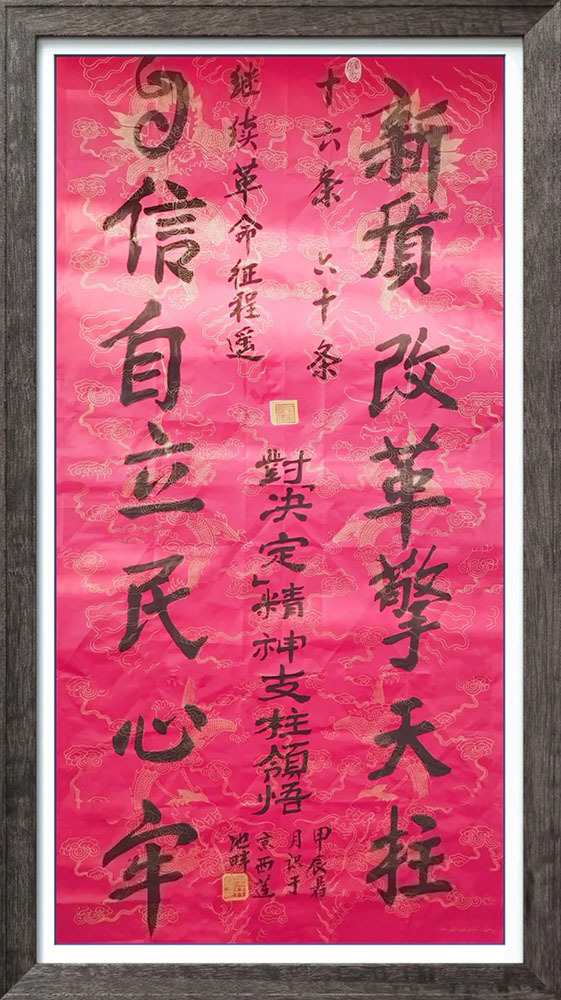 新貭改革擎天柱
十六条 六十条
继续革命征程遥
信自立民心牢
對「决定」精神支柱領悟
甲辰暑
月识于
京西莲
池畔